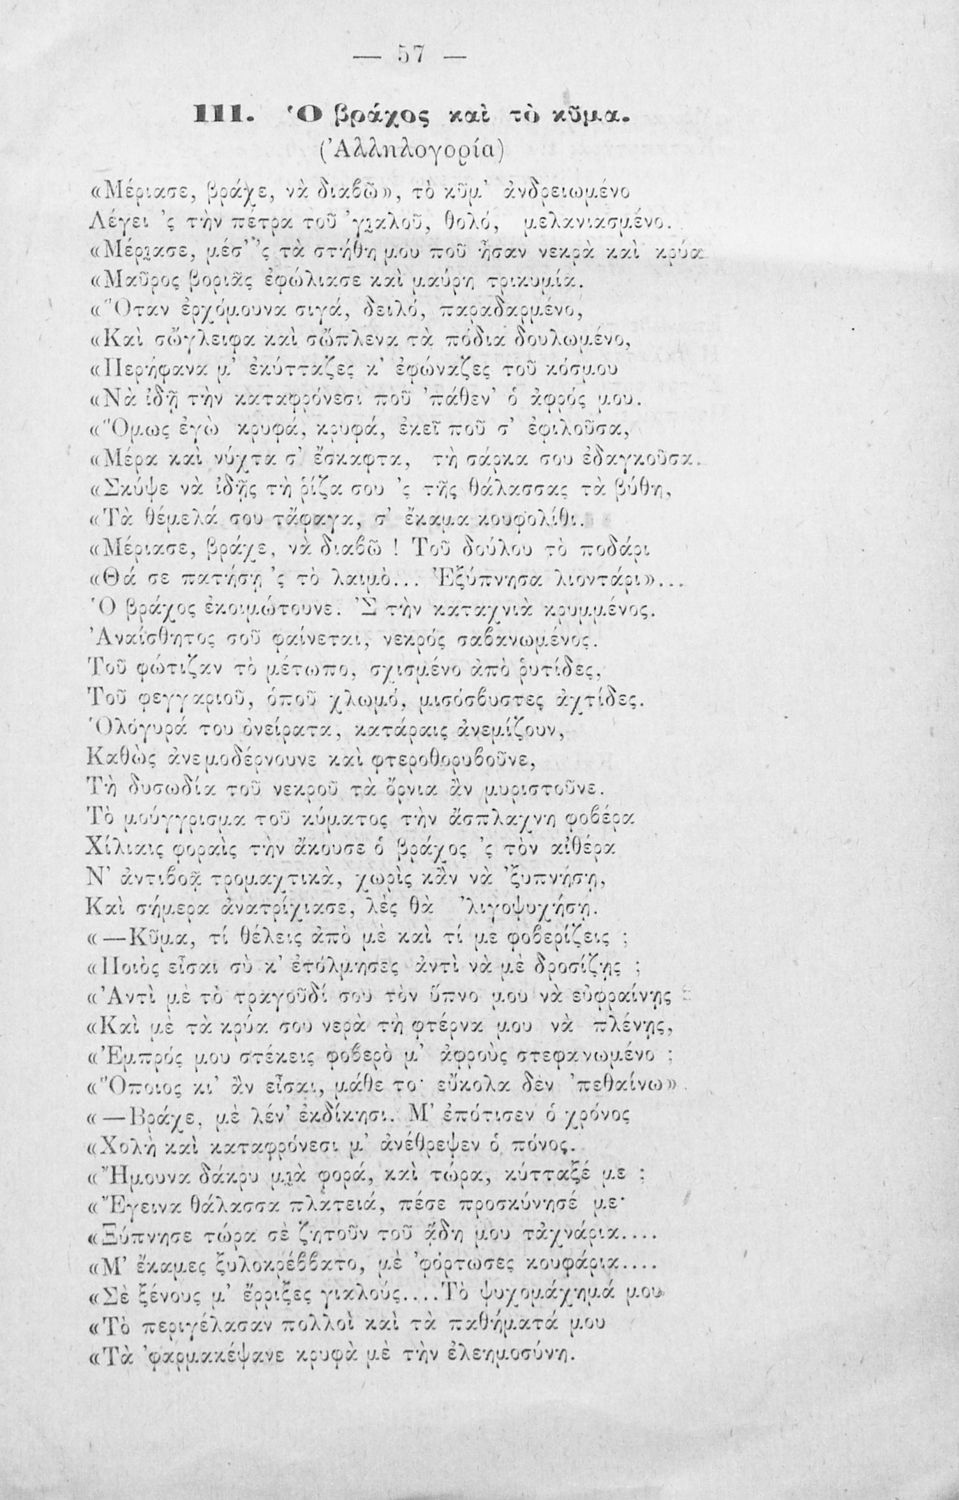 — 57 —
III. Ὁ βράχος καὶ τὸ κῦμα.
(Ἀλληλογορία)
«Μέριασε, βράχε, νὰ διαβῶ», τὸ κῦμ’ ἀνδρειωμένο
Λέγει ’ς τὴν πέτρα τοῦ ’γιαλοῦ, θολό, μελανιασμένο.
«Μέριασε, μέσ’ ’ς τὰ στήθη μου ποῦ ἦσαν νεκρὰ καὶ κρύα
«Μαῦρος βοριᾶς ἐφώλιασε καὶ μαύρη τρικυμία.
«Ὅταν ἐρχόμουνα σιγά, δειλό, παραδαρμένο,
«Καὶ σὤγλειφα καὶ σὤπλενα τὰ πόδια δουλωμένο,
«Περήφανα μ’ ἐκύτταζες κ’ ἐφώναζες τοῦ κόσμου
«Νὰ ἰδῇ τὴν καταφρόνεσι ποῦ ’πάθεν’ ὁ ἀφρός μου.
«Ὅμως ἐγὼ κρυφά, κρυφά, ἐκεῖ ποῦ σ’ ἐφιλοῦσα,
«Μέρα καὶ νύχτα σ’ ἔσκαφτα, τὴ σάρκα σου ἐδαγκοῦσα.
«Σκύψε νὰ ἰδῇς τὴ ρίζα σου ’ς τῆς θάλασσας τὰ βύθη,
«Τὰ θέμελά σου τἄφαγα, σ’ ἔκαμα κουφολίθι.
«Μέριασε, βράχε, νὰ διαβῶ ! Τοῦ δούλου τὸ ποδάρι
«Θά σε πατήσῃ ’ς τὸ λαιμὸ... Ἐξύπνησα λιοντάρι»...
Ὁ βράχος ἐκοιμώτουνε. Ἐ τὴν καταχνιὰ κρυμμένος.
Ἀναίσθητος σοῦ φαίνεται, νεκρός σαβανωμένος.
Τοῦ φώτιζαν τὸ μέτωπο, σχισμένο ἀπὸ ῥυτίδες,
Τοῦ φεγγαριοῦ, ὁποῦ χλωμό, μισόσβυστες ἀχτίδες.
Ὁλόγυρά του ὀνείρατα, κατάραις ἀνεμίζουν,
Καθὼς ἀνεμοδέρνουνε καὶ φτεροθορυβοῦνε,
Τὴ δυσωδία τοῦ νεκροῦ τὰ ὄρνια ἂν μυριστοῦνε.
Τὸ μούγγρισμα τοῦ κύματος τὴν ἄσπλαχνη φοβέρα
Χίλιαις φοραὶς τὴν ἄκουσε ὁ βράχος ’ς τὸν αἰθέρα
Ν’ ἀντιβοᾷ τρομαχτικά, χωρὶς κἂν νὰ ’ξυπνήσῃ,
Καὶ σήμερα ἀνατρίχιασε, λὲς θὰ ’λιγοψυχήσῃ.
«—Κῦμα, τί θέλεις ἀπὸ μὲ καὶ τί με φοβερίζεις ;
«Ποιὸς εἶσαι σὺ κ’ ἐτόλμησες ἀντὶ νὰ μὲ δροσίζῃς ;
«Ἀντὶ μὲ τὸ τραγοῦδί σου τὸν ὕπνο μου νὰ εὐφραίνῃς
«Καὶ μὲ τὰ κρύα σου νερὰ τὴ φτέρνα μου νὰ πλένῃς,
«Ἐμπρός μου στέκεις φοβερὸ μ’ ἀφροὺς στεφανωμένο ;
«Ὅποιος κι’ ἂν εἶσαι, μάθε το· εὔκολα δὲν ’πεθαίνω».
«—Βράχε, μὲ λέν’ ἐκδίκησι. Μ’ ἐπότισεν ὁ χρόνος
«Χολὴ καὶ καταφρόνεσι μ’ ἀνέθρεψεν ὁ πόνος.
«Ἤμουνα δάκρυ μιὰ φορά, καὶ τώρα, κύτταξέ με ;
«Ἔγεινα θάλασσα πλατειά, πέσε προσκύνησέ με·
«Ξύπνησε τώρα σὲ ζητοῦν τοῦ ᾅδη μου τἀχνάρια....
«Μ’ ἔκαμες ξυλοκρέββατο, μὲ ’φόρτωσες κουφάρια....
«Σὲ ξένους μ’ ἔρριξες γιαλούς....Τὸ ψυχομάχημά μου
«Τὸ περιγέλασαν πολλοὶ καὶ τὰ παθήματά μου
«Τὰ ’φαρμακέψανε κρυφὰ μὲ τὴν ἐλεημοσύνη.